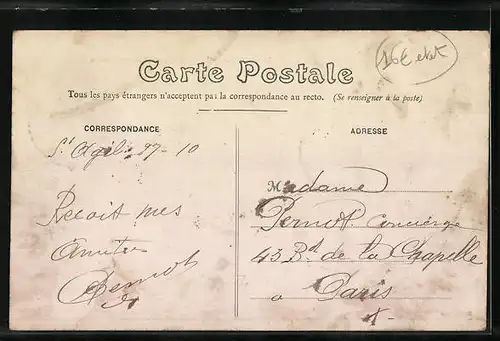 16€ etat
Carte Postale
Tous les pays étrangers n'acceptent pas la correspondance au recto. (Se renseigner à la poste)
CORRESPONDANCE
St Agil 27-10
Recoit mes
Amitiés
Pernot
ADRESSE
Madame
Pernot Concierge
43 Bd de la Chapelle
a Paris